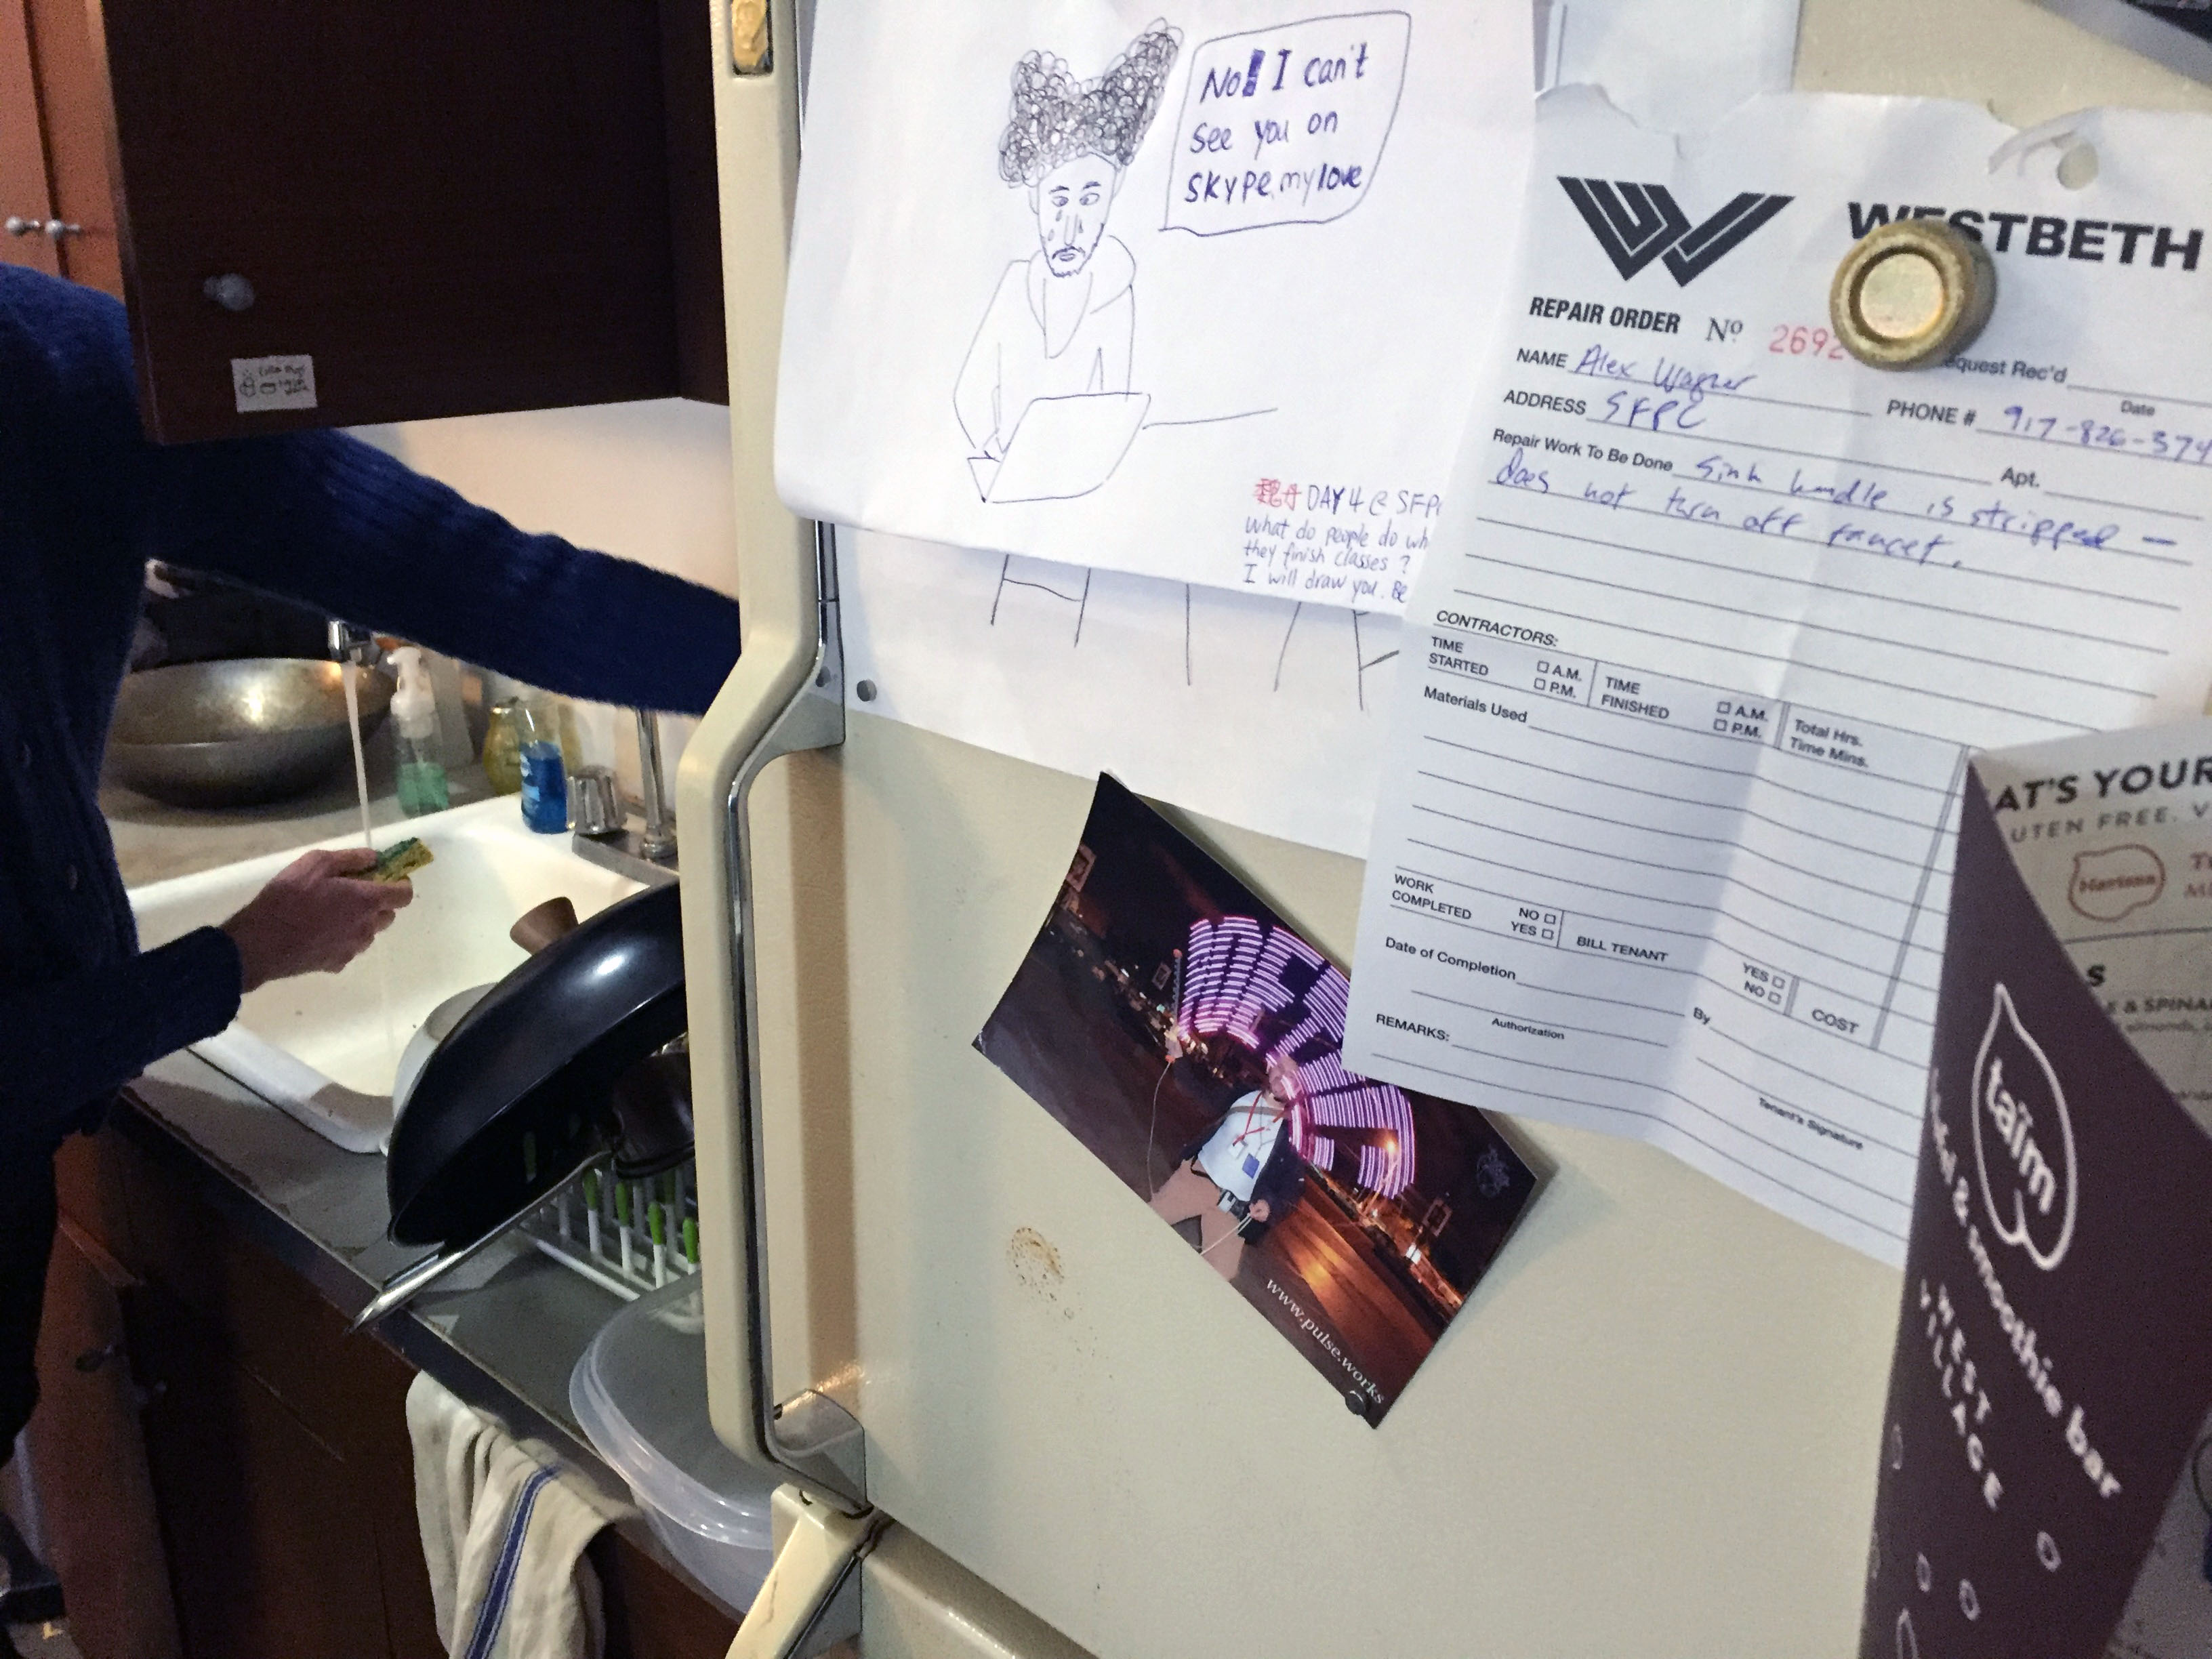 No! I can't
see you on
SKYPE, my love
魏丹 DAY 4 @ SFPC
What do people do wh
they finish classes ?
I will draw you. Be
WESTBETH
REPAIR ORDER Nº 2692
equest Rec'd
Date
NAME Alex Wagner
ADDRESS SFPC
PHONE # 917-826-374
Apt.
Repair Work To Be Done Sink handle is stripped –
does not turn off faucet.
CONTRACTORS:
TIME STARTED A.M. P.M.
TIME FINISHED A.M. P.M.
Total Hrs.
Time Mins.
Materials Used
WORK COMPLETED NO YES
BILL TENANT YES NO
COST
Date of Completion
By
Authorization
Tenant's Signature
REMARKS:
AT'S YOUR
UTEN FREE, V
Harissa
S
E & SPINA
almonds,
taïm
& smoothie bar
WEST
VILLAGE
www.pulse.works